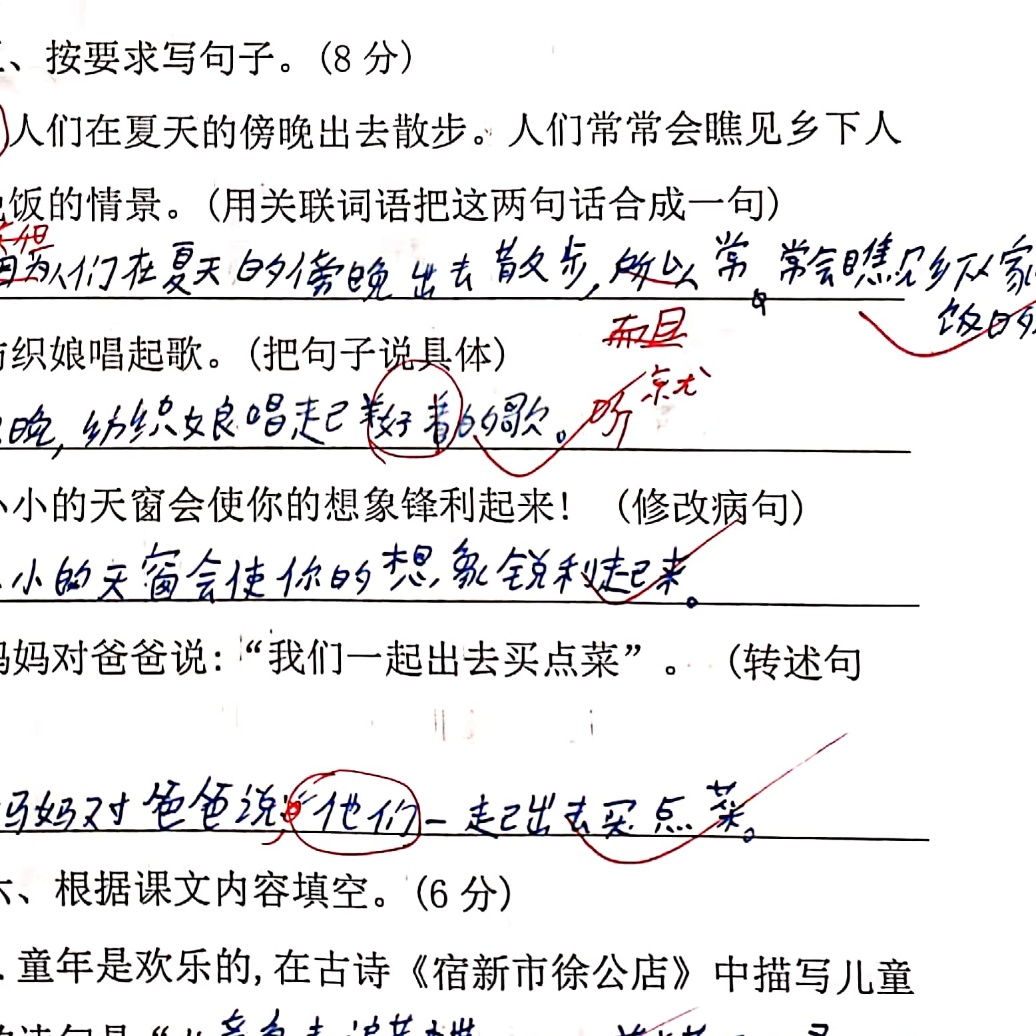 、按要求写句子。(8 分)
人们在夏天的傍晚出去散步。人们常常会瞧见乡下人
饭的情景。(用关联词语把这两句话合成一句)
不但
因为人们在夏天的傍晚出去散步,所以常常会瞧见乡下人家
饭的
而且
纺织娘唱起歌。(把句子说具体)
就
晚,纺织娘唱起好着的歌。 听
小小的天窗会使你的想象锋利起来! (修改病句)
小的天窗会使你的想象锐利起来。
妈妈对爸爸说:“我们一起出去买点菜”。 (转述句
妈妈对爸爸说, 他们一起出去买点菜。
六、根据课文内容填空。(6 分)
. 童年是欢乐的,在古诗《宿新市徐公店》中描写儿童
的诗句是“儿童急走追黄蝶